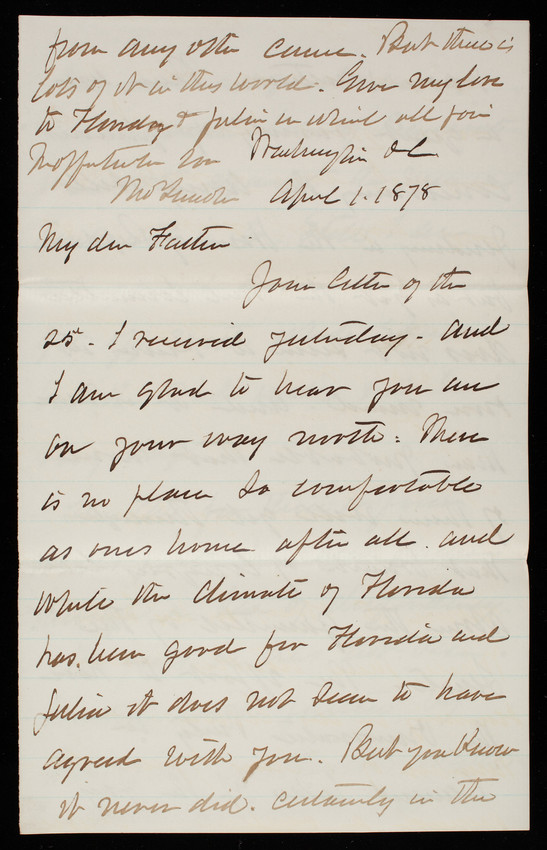 from any other cause. But there is
lots of it in this world. Give my love
to Florday & Julia in which all join
Affectionate son
Tho: Lincoln
Washington D.C.
April 1. 1878
My dear Father
Your letter of the
25th. I received yesterday. and
I am glad to hear you are
on your way north: There
is no place so comfortable
as ones home after all. and
while the climate of Florida
has been good for Florida and
Julia it does not seem to have
agreed with you. But you Know
it never did. certainly in the